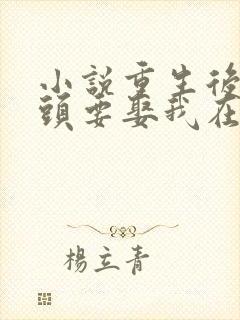 小說重生後
頭要娶我在
楊立青